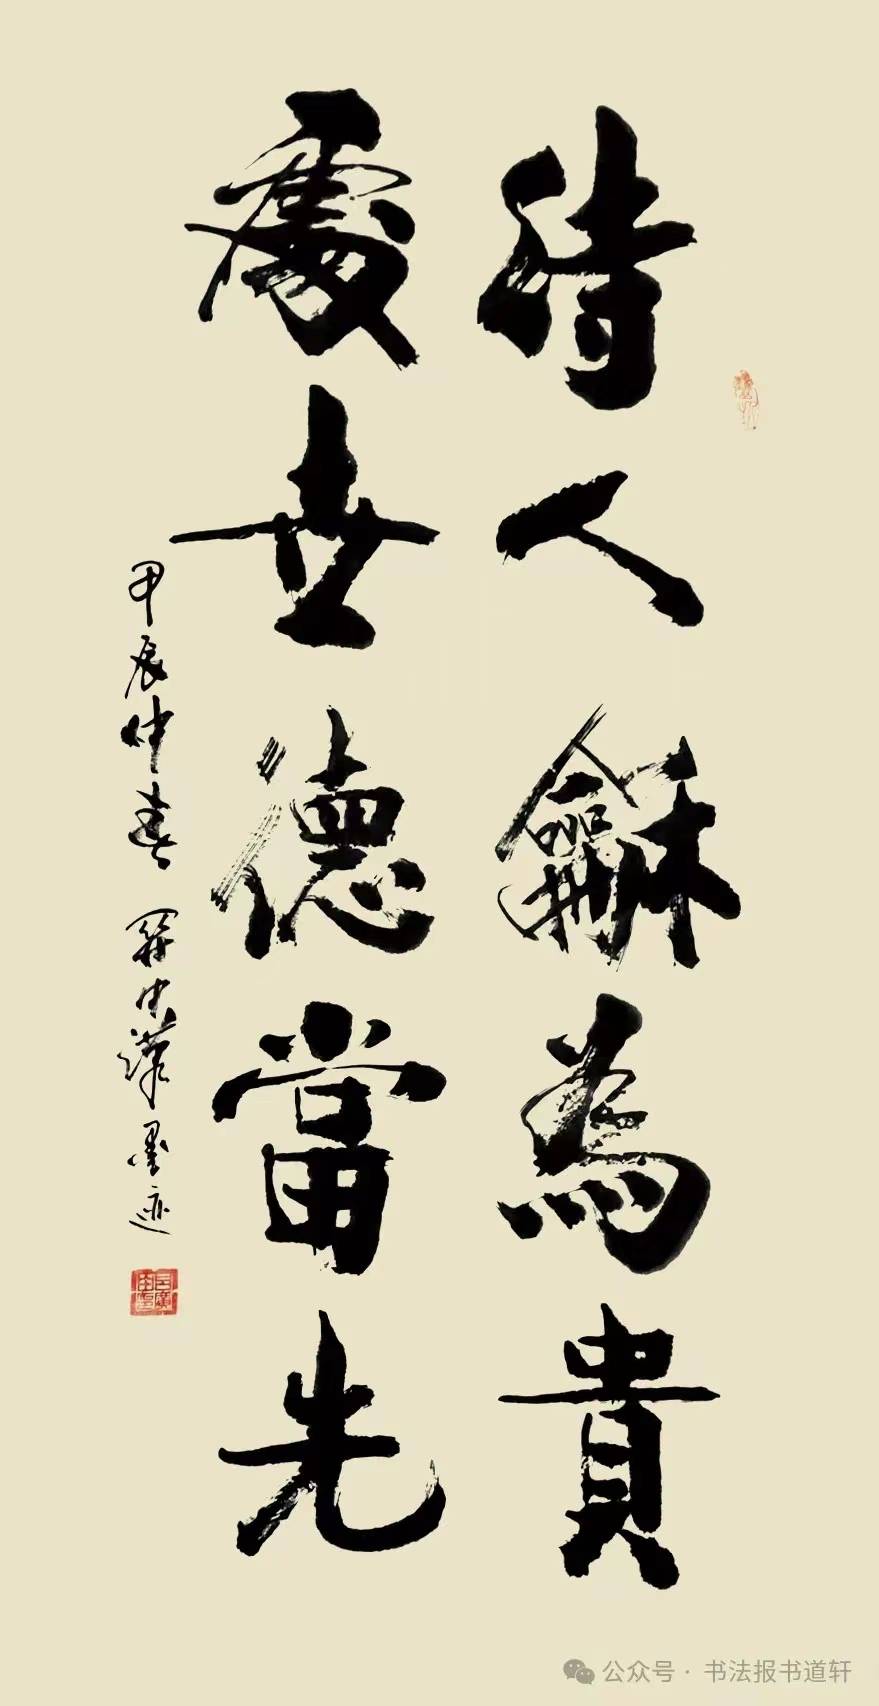 待人龢為貴
處世德當先
甲辰仲春 關中漢墨迹
公众号 · 书法报书道轩